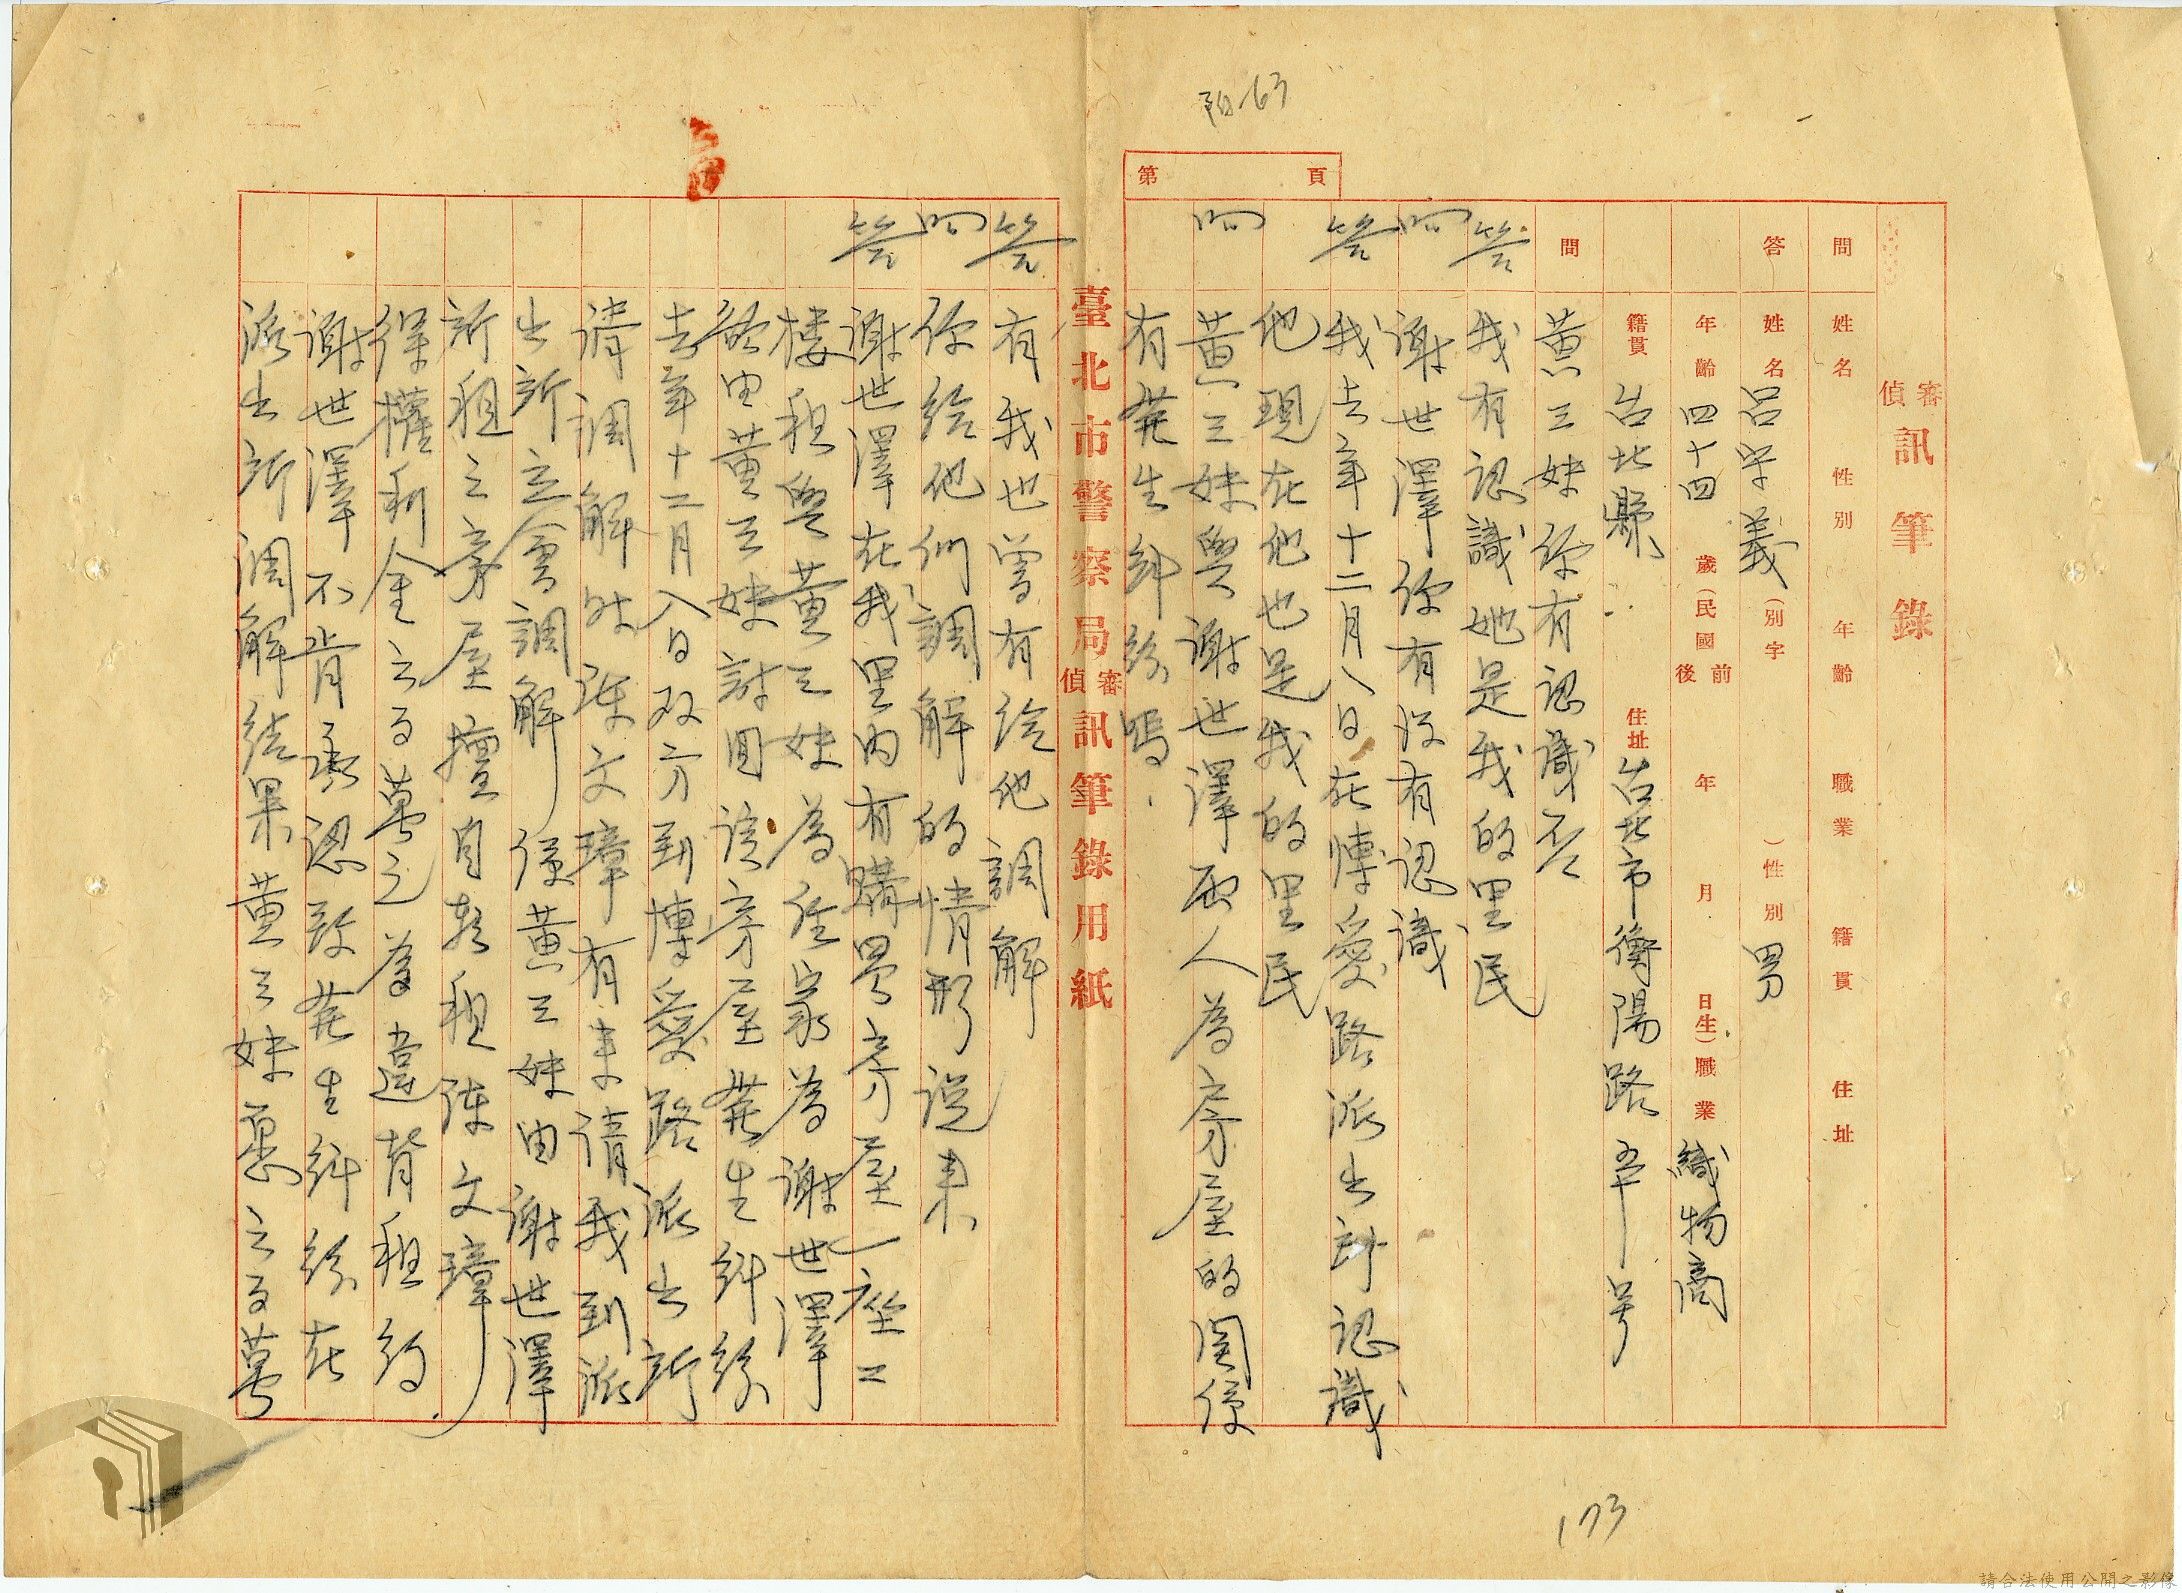 偵審訊筆錄
問 姓名 性別 年齡 職業 籍貫 住址
答 姓名 呂学義 (別字 ) 性別 男
年齡 四十四 歲(民國 前後 年 月 日生) 職業 織物商
籍貫 台北縣 住址 台北市衡陽路 号
問 黄三妹你有認識否
答 我有認識她是我的里民
問 謝世澤你有沒有認識
答 我去年十二月八日在博愛路派出所認識
他現在他也是我的里民
問 黄三妹與謝世澤兩人為房屋的関係
有発生糾紛嗎
第 頁
臺北市警察局偵審訊筆錄用紙
答 有我也曾有给他調解
問 你给他们調解的情形说来
答 謝世澤在我里内有購買房屋一座二
楼租與黄三妹為住家為謝世澤
欲由黄三妹討回該房屋発生糾紛
去年十二月八日双方到博愛路派出所
請調解時陳文璋有来请我到派
出所立會調解後黄三妹由謝世澤
所租之房屋擅自転租陳文璋
得權利金六百萬元為違背租約
謝世澤不肯承認致発生糾紛在
派出所調解結果黄三妹愿六百萬
陌-63
173
請合法使用公開之影像